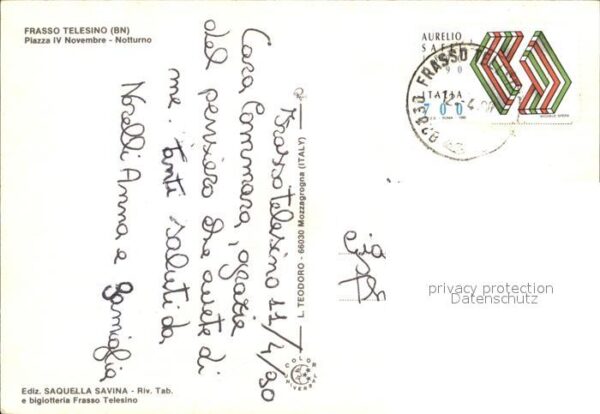 FRASSO TELESINO (BN)
Piazza IV Novembre - Notturno
Frasso Telesino 11/4/90
Cara Commara, grazie
del pensiero che avete di
me. Tanti saluti da
Norelli Anna e famiglia
L. TEODORO - 66030 Mozzagrogna (ITALY)
COLOR
UNIVERSAL
AURELIO
ITALIA
700
FRASSO
privacy protection
Datenschutz
Ediz. SAQUELLA SAVINA - Riv. Tab.
e bigiotteria Frasso Telesino